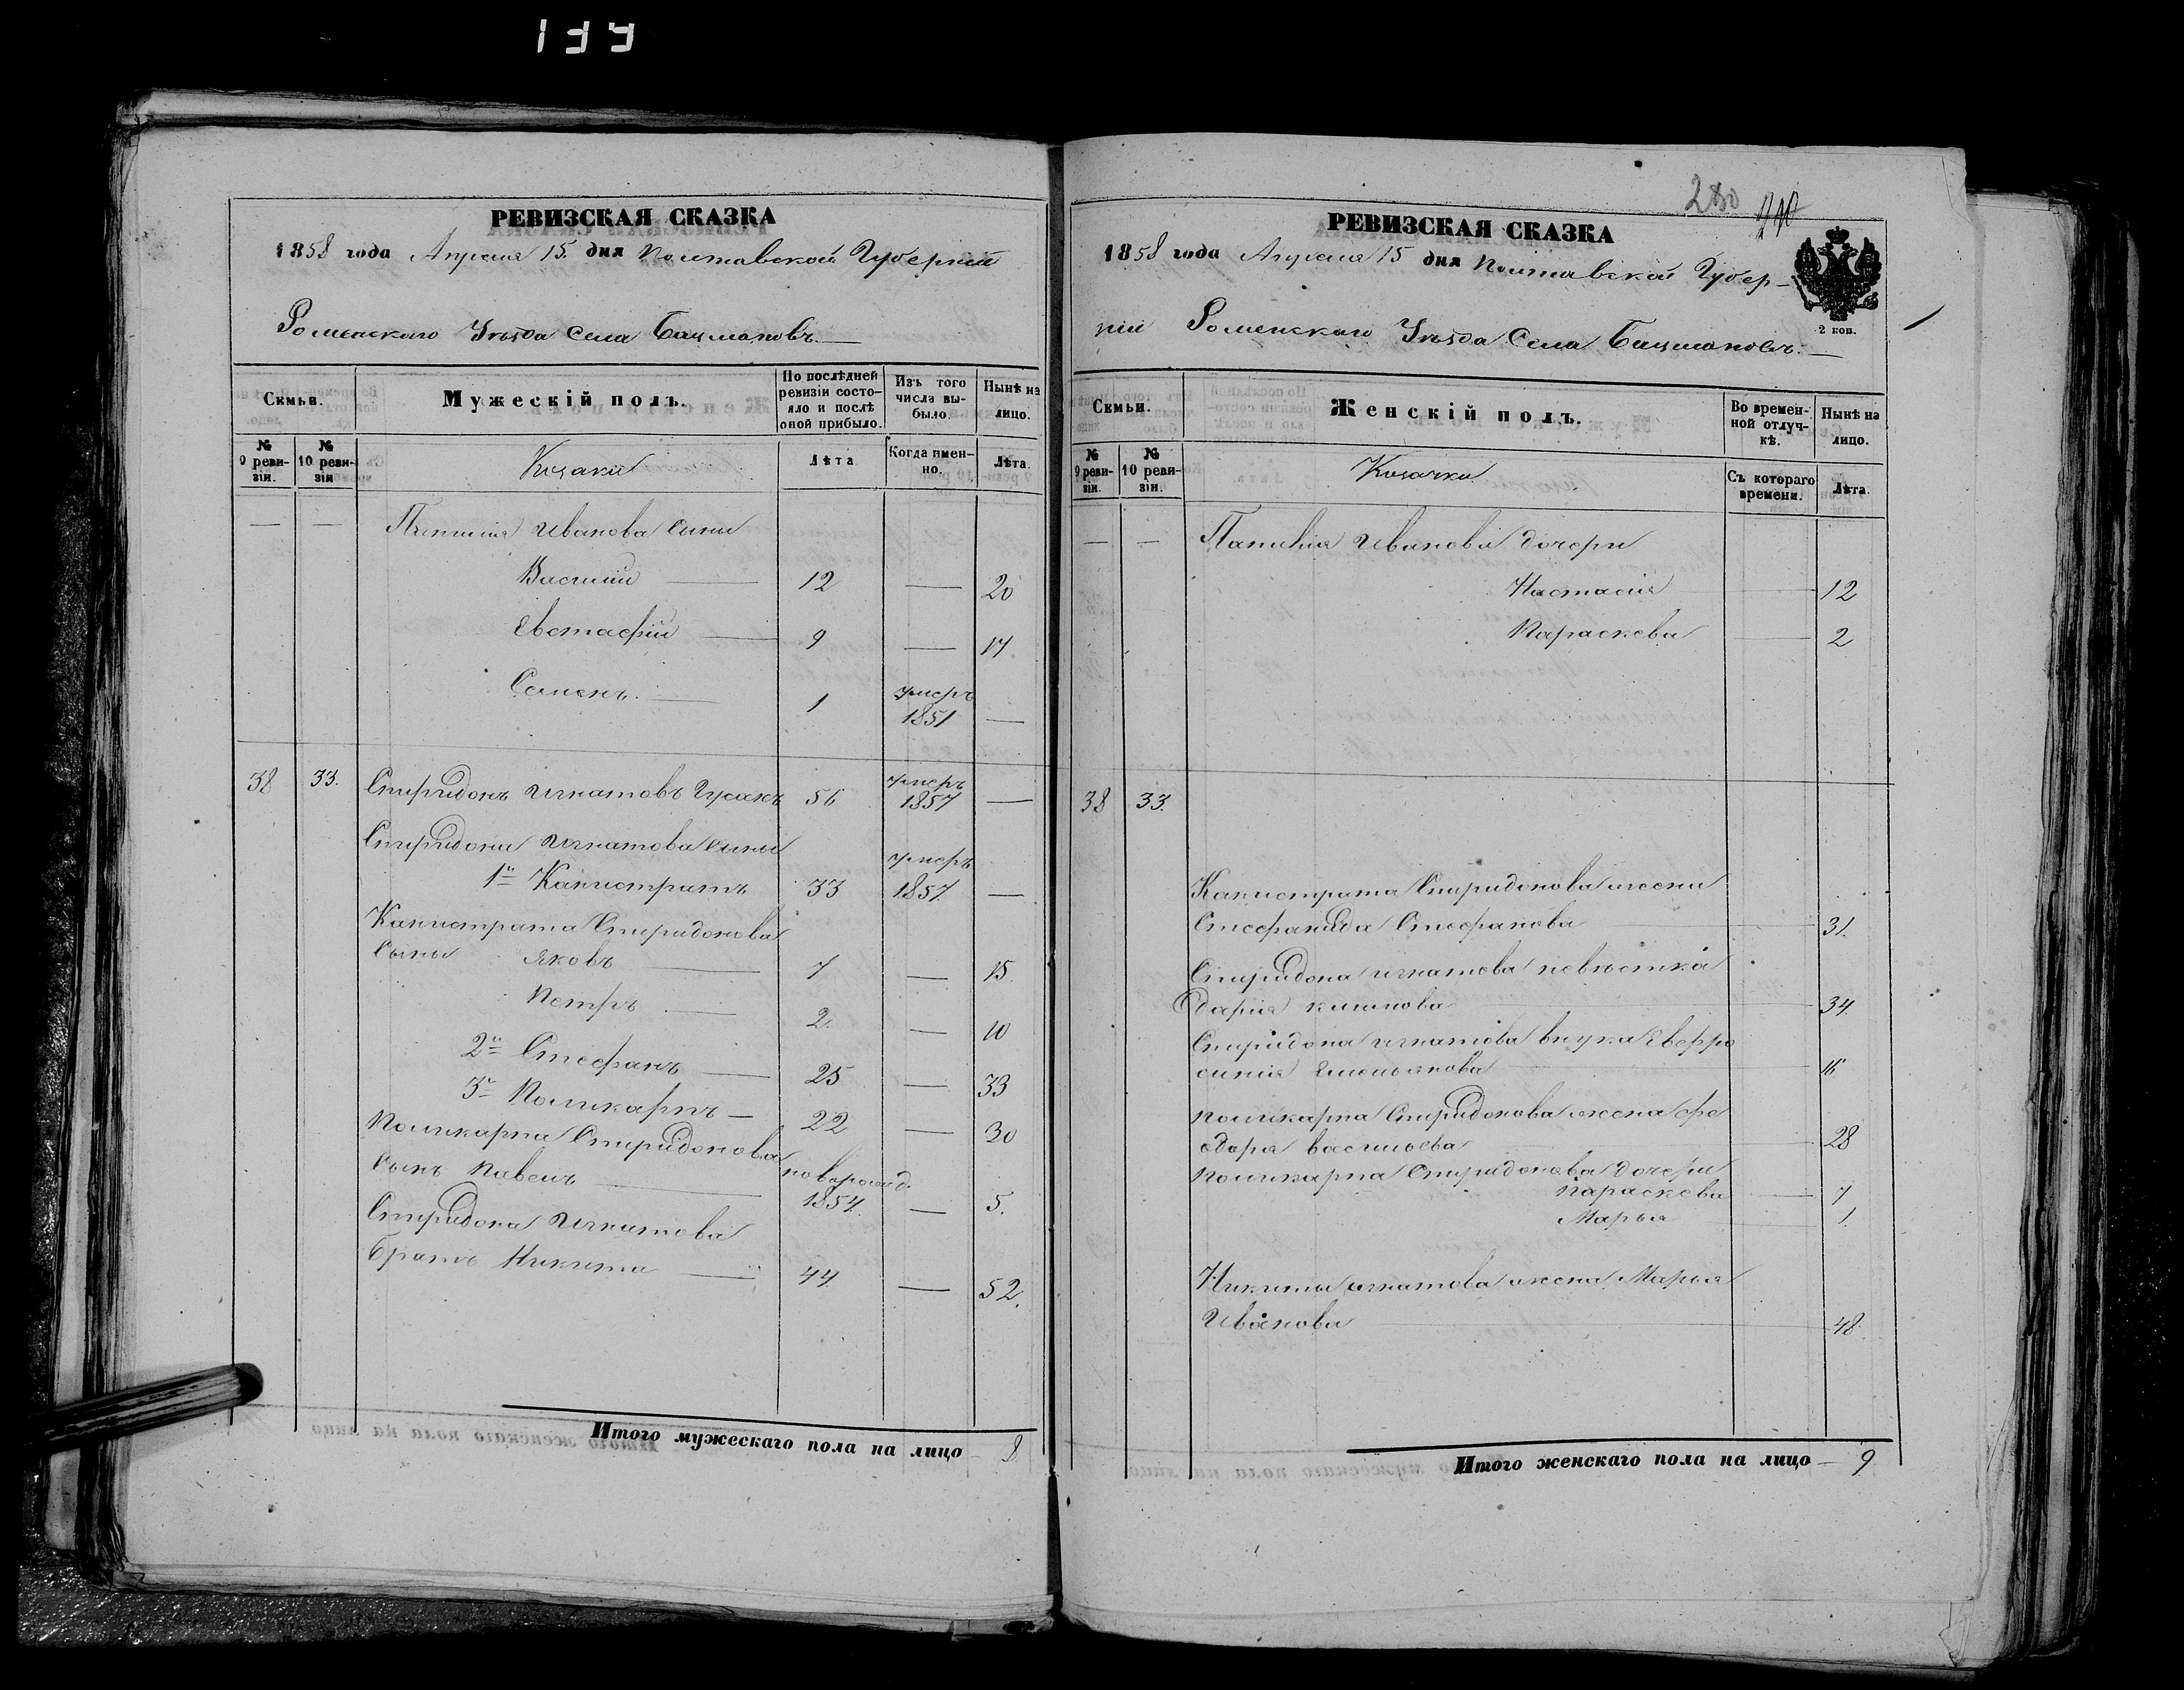 РЕВИЗСКАЯ СКАЗКА
1858 года Апреля 15 дня Полтавской Губернiи
Роменскаго Уѣзда Села Бацмановъ.
Семьи.
Мужескiй полъ.
По послѣдней ревизiи состояло и послѣ оной прибыло.
Изъ того числа выбыло.
Нынѣ на лицо.
№ 9 ревизiи.
№ 10 ревизiи
Козаки
Лѣта
Когда именно.
Лѣта.
— — Ивана сыны
Василiй — 12 — 20
Евстафiй — 9 — 17
Семенъ — 1 умеръ 1851 —
38 33. Спиридонъ Игнатовъ Гусакъ 56 умеръ 1857 —
Спиридона Игнатова сыны
1й Калистратъ 33 умеръ 1857. —
Калистрата Спиридонова
сыны Яковъ — 7 — 15
Петръ — 2. — 10
2й Стефанъ — 25 — 33
3й Поликарпъ — 22 — 30
Поликарпа Спиридонова
сынъ Павелъ — новорожд. 1854. — 5.
Спиридона Игнатова
братъ Никита — 44. — 52.
Итого мужескаго пола на лицо 8
280
РЕВИЗСКАЯ СКАЗКА
1858 года Апреля 15 дня Полтавской Губер-
нiи Роменскаго Уѣзда Села Бацмановъ.
2 коп.
Семьи.
Женскiй полъ.
Во временной отлучкѣ.
Нынѣ на лицо.
№ 9 ревизiи.
№ 10 ревизiи.
Козачки
Съ котораго времени.
Лѣта.
— — Иванова дочери
Настасiя — 12
Параскева — 2
38 33.
Калистрата Спиридонова жена
Стефанида Стефанова — 31.
Спиридона Игнатова невѣстка
Дарiя — 34.
Спиридона Игнатова внука Евфро
синiя Емельянова — 16
Поликарпа Спиридонова жена Фе
одора Васильева — 28
Поликарпа Спиридонова дочери
Параскева — 7
Марья — 1.
Никиты Игнатова жена Марья
Иванова — 48.
Итого женскаго пола на лицо — 9